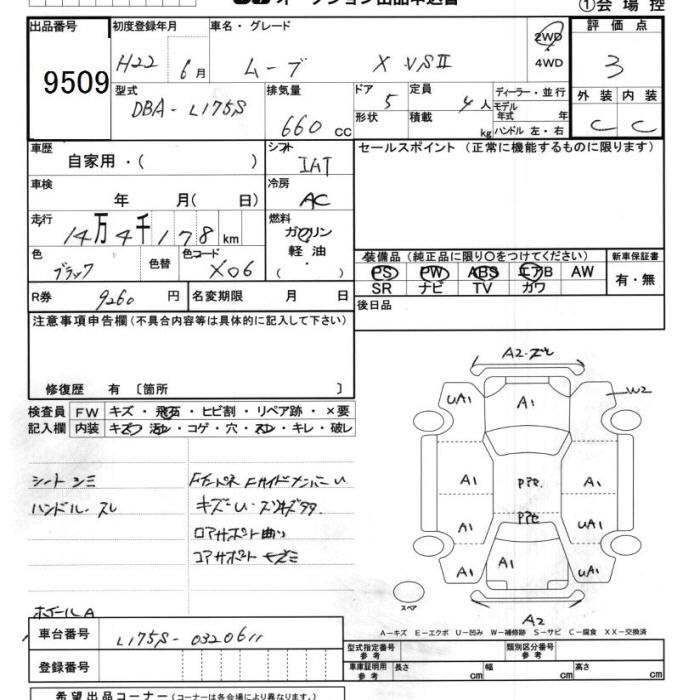 オークション出品申込書
①会場控
出品番号 初度登録年月 車名・グレード 2WD 評価点
9509 H22 6月 ムーブ X VSⅡ 4WD 3
型式 排気量 ドア 定員 ディーラー・並行 外装 内装
DBA-L175S 660cc 5 4人 モデル年式 年 C C
形状 積載 kg ハンドル 左・右
車歴 シフト セールスポイント (正常に機能するものに限ります)
自家用・( ) IAT
車検 冷房
年 月( 日) AC
走行 燃料
14万4千178km ガソリン
軽油
( ・ )
色 色替 色コード 装備品 (純正品に限り○をつけてください) 新車保証書
ブラック X06 PS PW ABS エアB AW 有・無
SR ナビ TV カワ
R券 9260円 名変期限 月 日 後日品
注意事項申告欄(不具合内容等は具体的に記入して下さい)
修復歴 有 〔箇所 〕
検査員 FW キズ・飛石・ヒビ割・リペア跡・×要
記入欄 内装 キズ・汚レ・コゲ・穴・スレ・キレ・破レ
シートシミ
ハンドル・スレ
キズ・U・
ロアサポート曲り
コアサポートキズミ
ホイールA
A2
UA1 A1 W2
A1 A1
A1 UA1
A1 A1 UA1
スペア
A2
A-キズ E-エクボ U-凹み W-補修跡 S-サビ C-腐食 XX-交換済
車台番号 L175S-0320611
型式指定番号 参考 類別区分番号 参考
登録番号 車庫証明用 参考 長さ cm 幅 cm 高さ cm
希望出品コーナー(コーナーは各会場により異なります。)